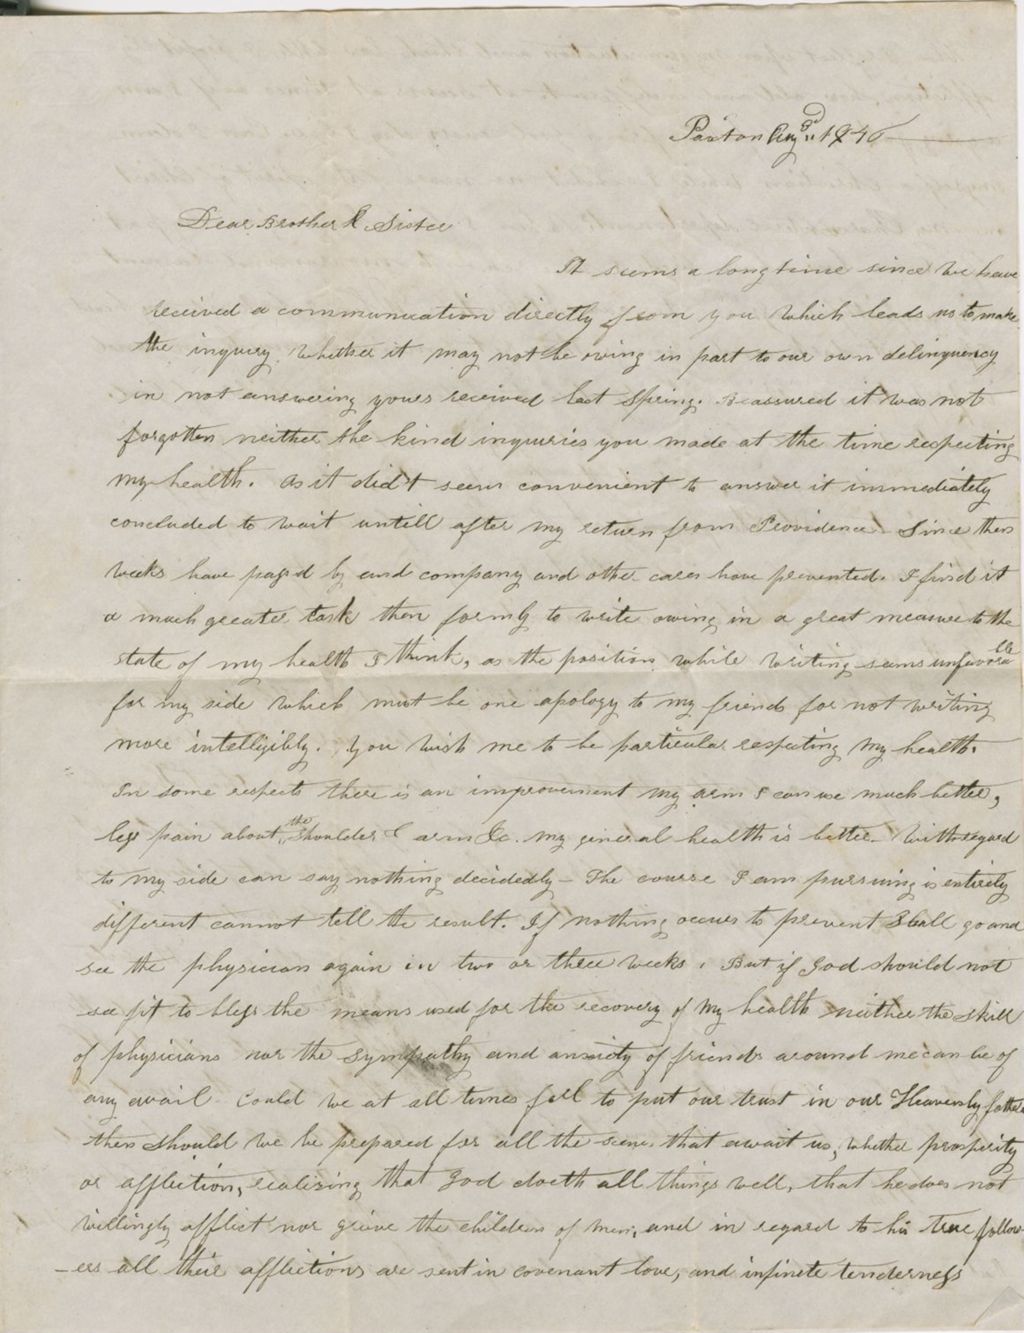 Paxton Aug 3d 1846
Dear Brother & Sister
It seems a long time since we have
received a communication directly from you which leads us to make
the inquiry whether it may not be owing in part to our own delinquency
in not answering yours received last Spring. Be assured it was not
forgotten neither the kind inquiries you made at the time respecting
my health. As it did't seem convenient to answer it immediately
concluded to wait untill after my return from Providence. Since then
weeks have passd by and company and other cares have prevented. I find it
a much greater task then formly to write owing in a great measure to the
state of my health I think, as the position while writing seems unfavorable
for my side which must be one apology to my friends for not writing
more intelligibly. You wish me to be particular respecting my health.
In some respects there is an improvement my arm I can use much better,
less pain about the shoulder & arm &c. my general health is better. With regard
to my side can say nothing decidedly - The course I am pursuing is entirely
different cannot tell the result. If nothing occurs to prevent shall go and
see the physician again in two or three weeks. But if God should not
see fit to bless the means used for the recovery of my health neither the skill
of physicians nor the sympathy and anxiety of friends around me can be of
any avail. Could we at all times feel to put our trust in our Heavenly father
then should we be prepared for all the scenes that await us, whether prosperity
or affliction, realising that God doeth all things well, that he does not
willingly afflict nor grieve the children of men, and in regard to his true follow
-ers all their afflictions are sent in covenant love, and infinite tenderness